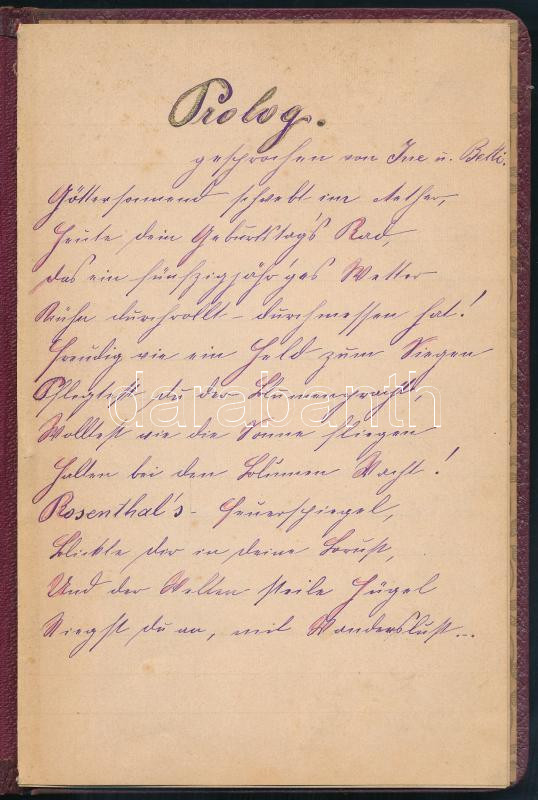 Prolog.
gesprochen von Ine u. Betti.
Göttersonnend schwebt im Aether,
Heute dein Geburtstag's Rad,
Das ein fünfzigjähr'ges Wetter
Kühn durchrollt – durchmessen hat!
Freudig wie ein Held zum Siegen
Pflegtest du der Blumenpracht,
Wolltest wie die Sonne fliegen
Halten bei den Blumen Wacht!
Rosenthal's – Feuerspiegel,
Blickte dir in deine Brust,
Und der Welten steile Hügel
Stiegst du an, mit Wanderslust...
darabanth